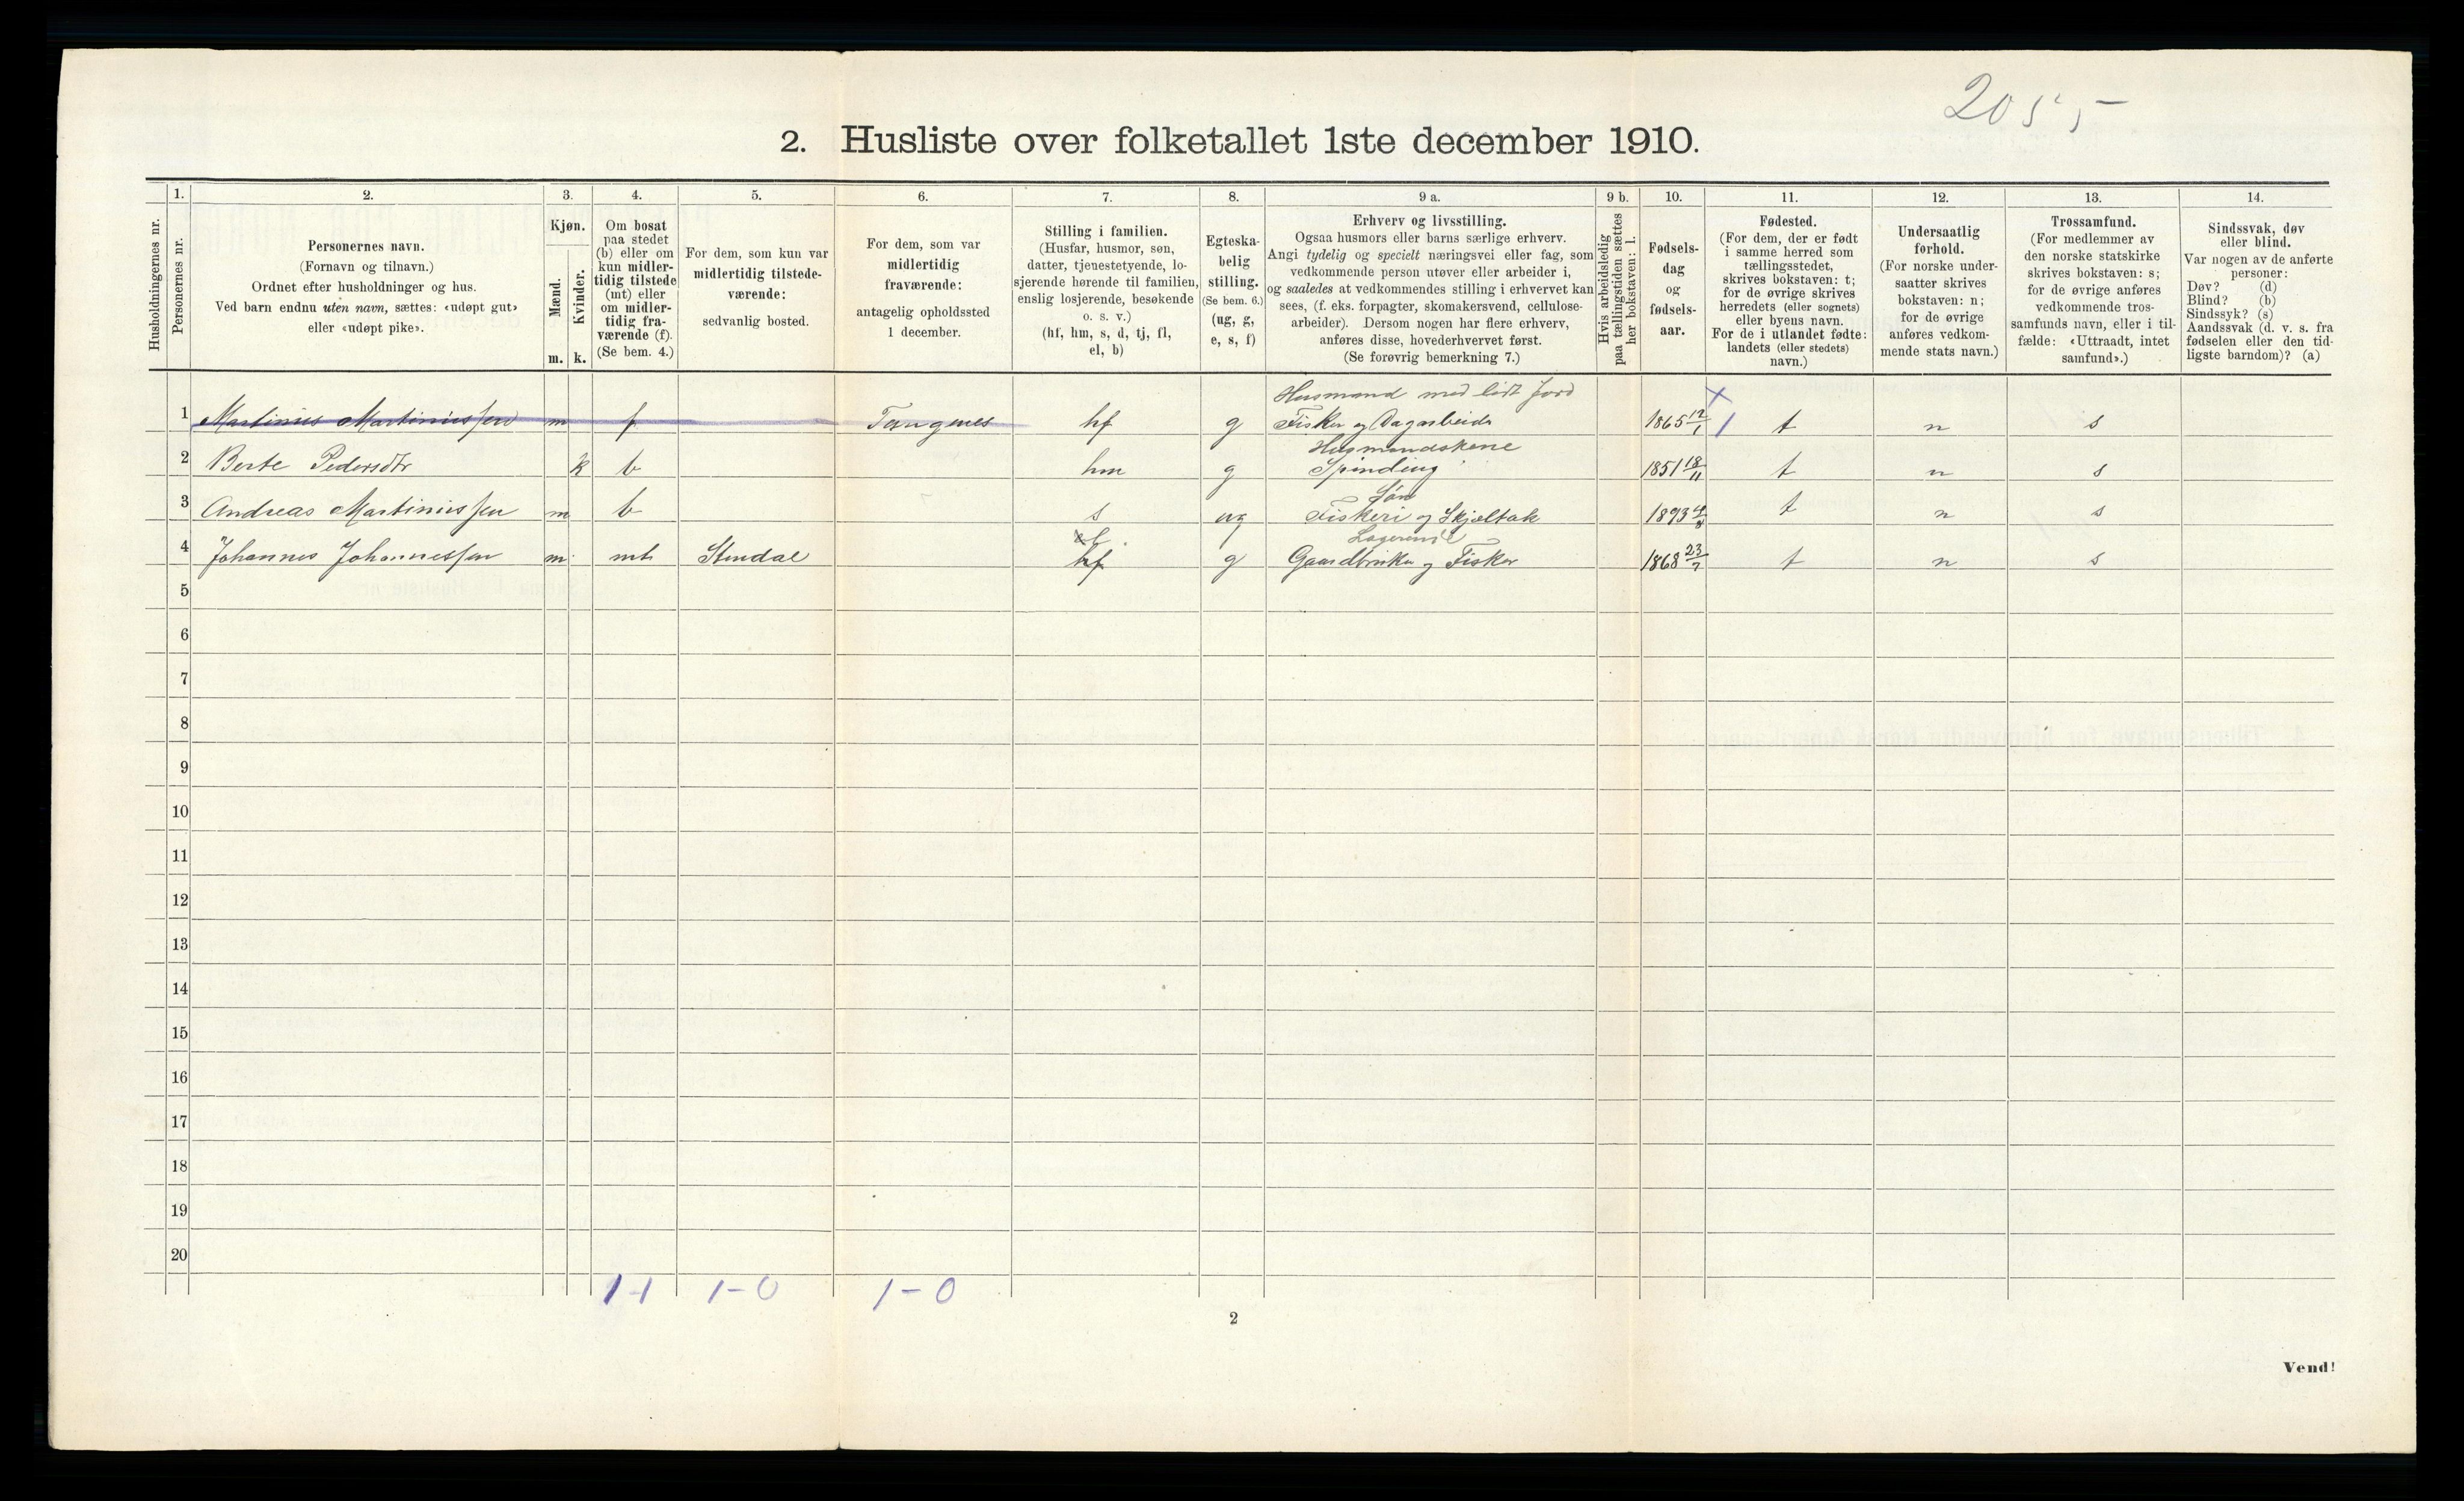 205,-
2. Husliste over folketallet 1ste december 1910.
Husholdningernes nr.
1.
Personernes nr.
2.
Personernes navn.
(Fornavn og tilnavn.)
Ordnet efter husholdninger og hus.
Ved barn endnu uten navn, sættes: «udøpt gut»
eller «udøpt pike».
3.
Kjøn.
Mænd.
Kvinder.
m. k.
4.
Om bosat
paa stedet
(b) eller om
kun midler-
tidig tilstede
(mt) eller
om midler-
tidig fra-
værende (f).
(Se bem. 4.)
5.
For dem, som kun var
midlertidig tilstede-
værende:
sedvanlig bosted.
6.
For dem, som var
midlertidig
fraværende:
antagelig opholdssted
1 december.
7.
Stilling i familien.
(Husfar, husmor, søn,
datter, tjenestetyende, lo-
sjerende hørende til familien,
enslig losjerende, besøkende
o. s. v.)
(hf, hm, s, d, tj, fl,
el, b)
8.
Egteska-
belig
stilling.
(Se bem. 6.)
(ug, g,
e, s, f)
9 a.
Erhverv og livsstilling.
Ogsaa husmors eller barns særlige erhverv.
Angi tydelig og specielt næringsvei eller fag, som
vedkommende person utøver eller arbeider i,
og saaledes at vedkommendes stilling i erhvervet kan
sees, (f. eks. forpagter, skomakersvend, cellulose-
arbeider). Dersom nogen har flere erhverv,
anføres disse, hovederhvervet først.
(Se forøvrig bemerkning 7.)
9 b.
Hvis arbeidsledig
paa tællingstiden sættes
her bokstaven: l.
10.
Fødsels-
dag
og
fødsels-
aar.
11.
Fødested.
(For dem, der er født
i samme herred som
tællingsstedet,
skrives bokstaven: t;
for de øvrige skrives
herredets (eller sognets)
eller byens navn.
For de i utlandet fødte:
landets (eller stedets)
navn.)
12.
Undersaatlig
forhold.
(For norske under-
saatter skrives
bokstaven: n;
for de øvrige
anføres vedkom-
mende stats navn.)
13.
Trossamfund.
(For medlemmer av
den norske statskirke
skrives bokstaven: s;
for de øvrige anføres
vedkommende tros-
samfunds navn, eller i til-
fælde: «Uttraadt, intet
samfund».)
14.
Sindssvak, døv
eller blind.
Var nogen av de anførte
personer:
Døv? (d)
Blind? (b)
Sindssyk? (s)
Aandssvak (d. v. s. fra
fødselen eller den tid-
ligste barndom)? (a)
Husmand med lidt Jord
1 Martinius Martiniussen m f Tangenes hf g Fisker og Dagarbeider 1865 12/1 t n s
Husmandskone
2 Berte Pedersdtr k b hm g Spinding 1851 18/11 t n s
Søn
3 Andreas Martiniussen m b s ug Fiskeri og Skjæltak 1893 4/8 t n s
el. Logerende
4 Johannes Johannessen m mt Stendal hf g Gaardbruker og Fisker 1868 23/7 t n s
5
6
7
8
9
10
11
12
13
14
15
16
17
18
19
20
1-1 1-0 1-0
2
Vend!